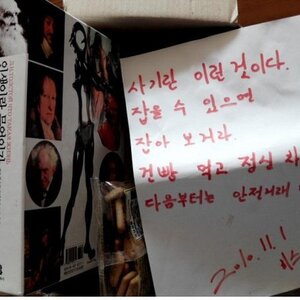 사기란 이런것이다.
잡을 수 있으면
잡아 보거라.
건빵 먹고 정신 차
다음부터는 안전거래
2010.11.1
인생이란 무엇인가